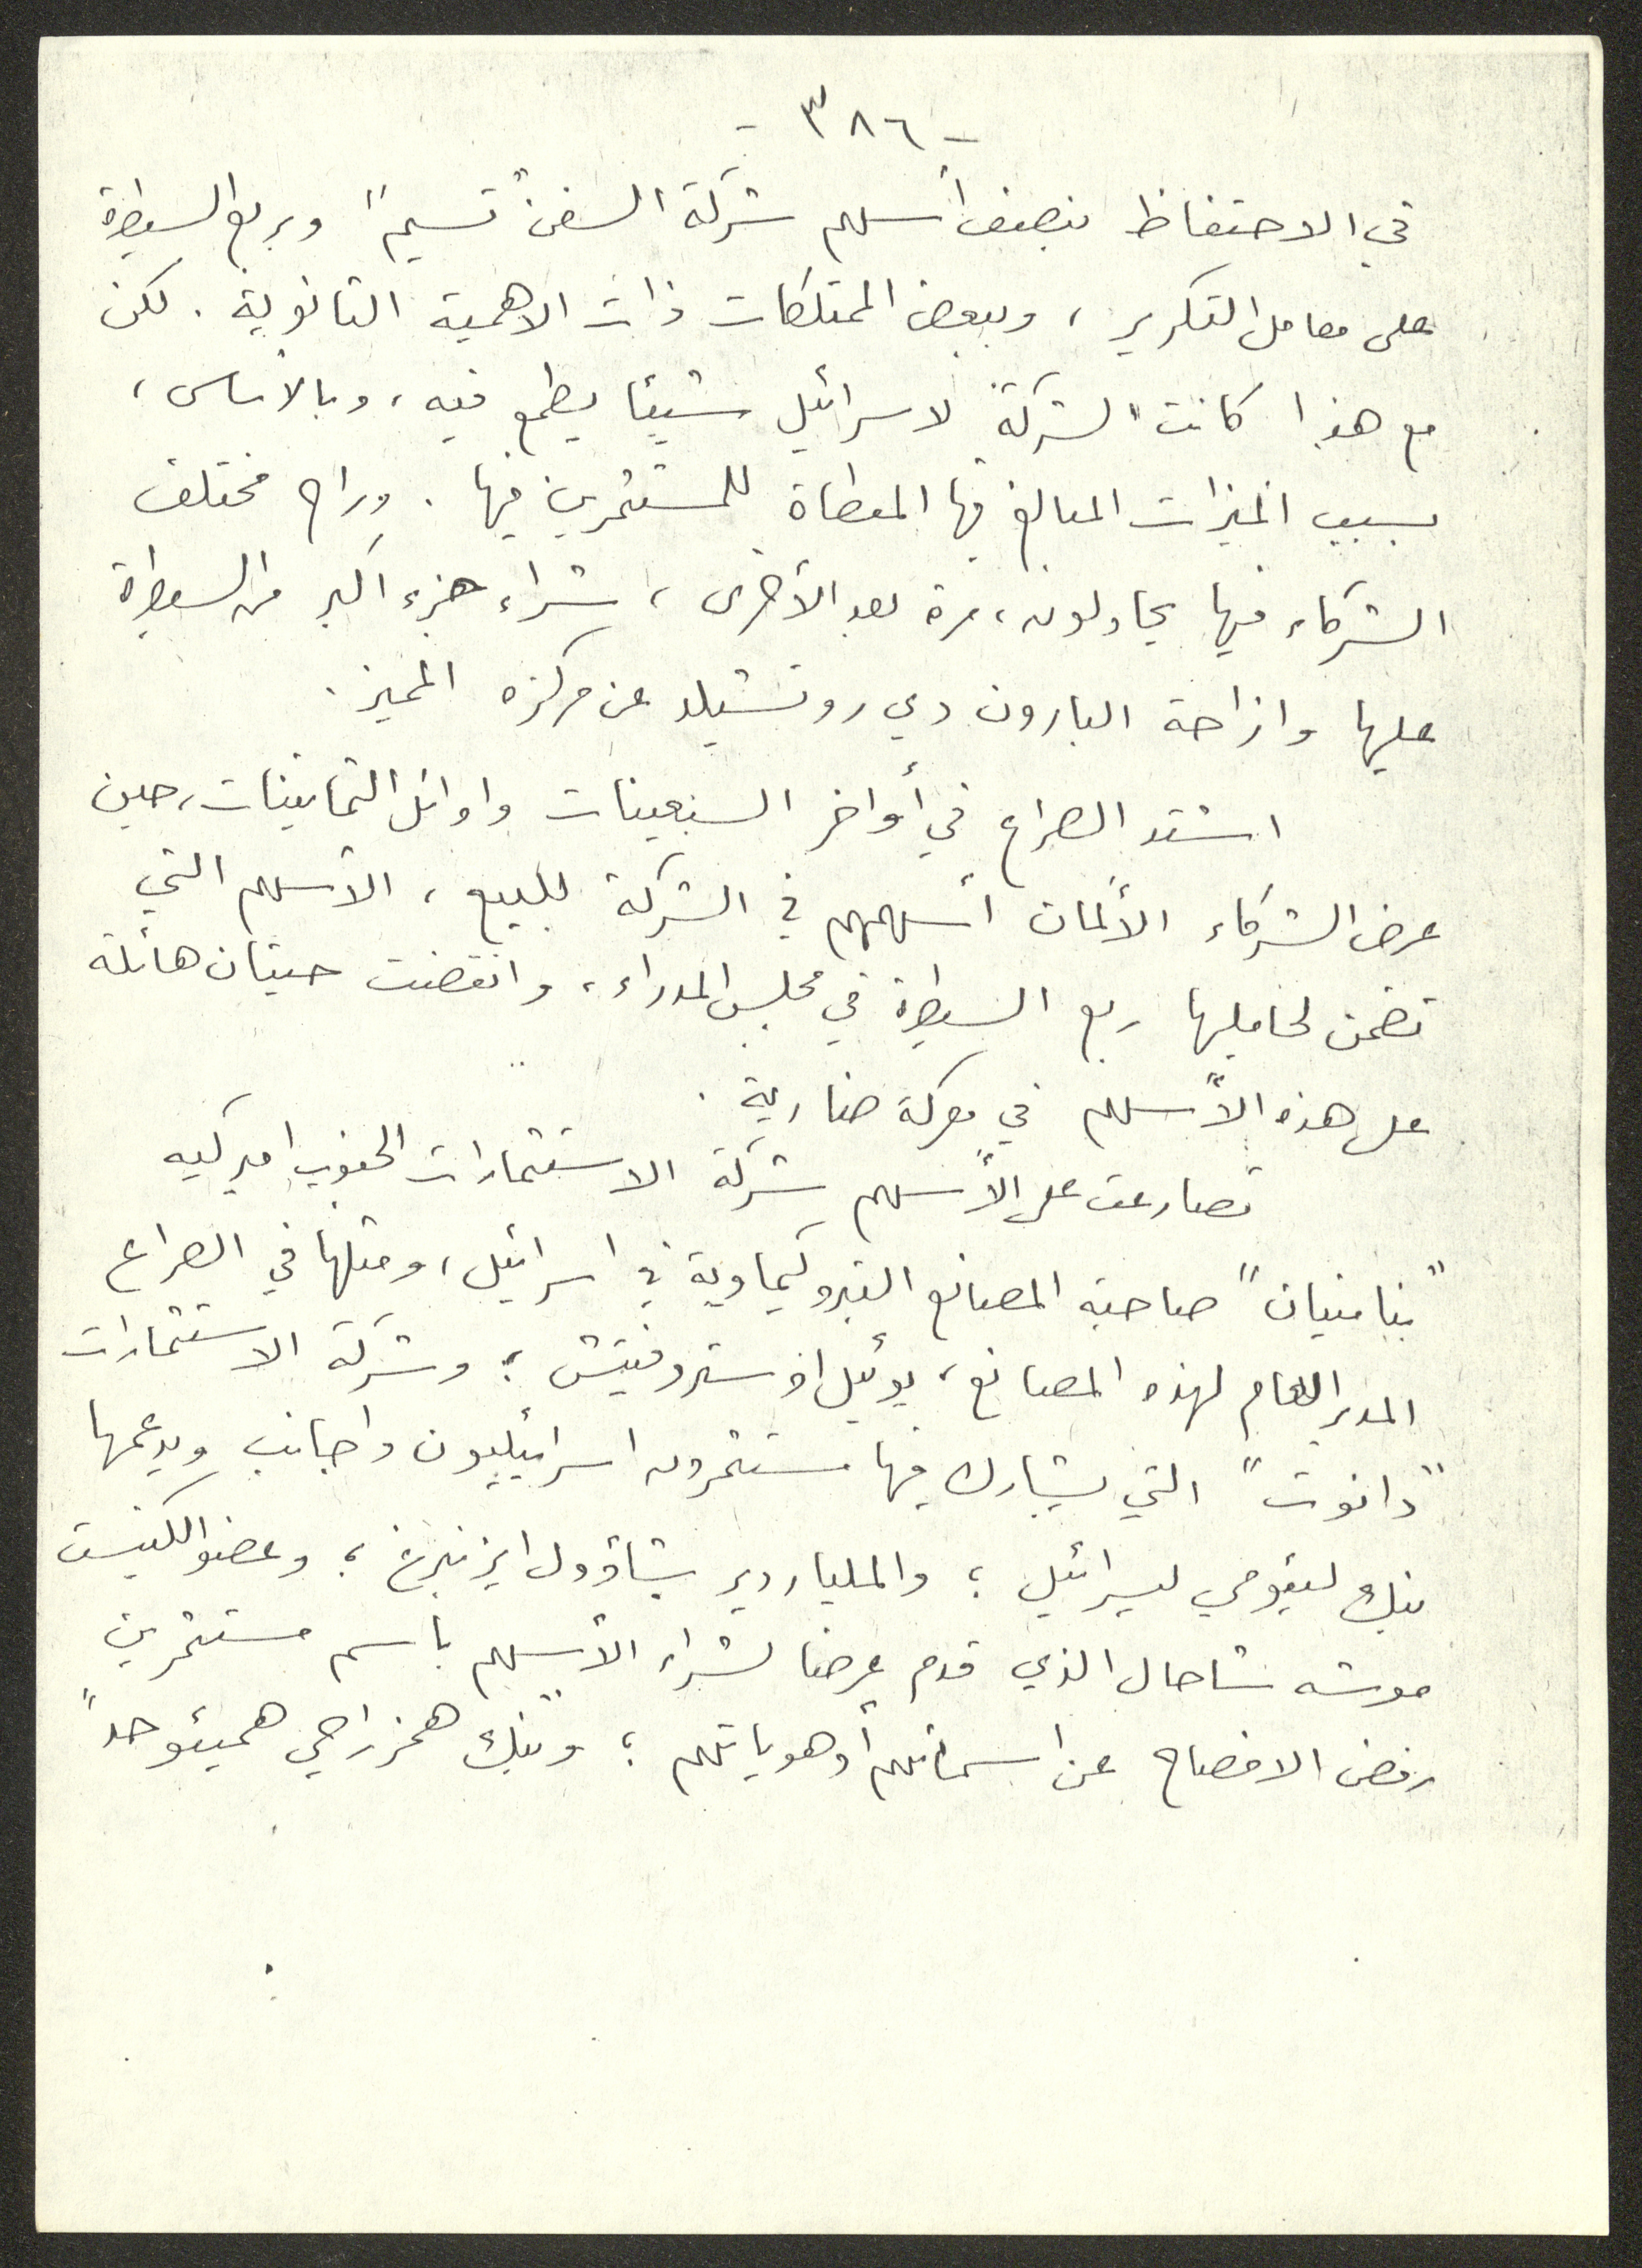 - ٣٨٦ -
في الاحتفاظ بنصف أسهم شركة السفن "تسيم" وبربع السيطرة
على معامل التكرير ، وببعض الممتلكات ذات الاهمية الثانوية . لكن
مع هذا كانت "الشركة لاسرائيل" شيئا يطمع فيه ، وبالأساس ،
بسبب الميزات المبالغ فيها المعطاة للمستثمرين فيها . وراح مختلف
الشركاء فيها يحاولون ، مرة بعد الأخرى ، شراء جزء اكبر من السيطرة
عليها وازاحة البارون دي روتشيلد عن مركزه المميز .
اشتد الصراع في أواخر السبعينات واوائل الثمانينات ، حين
عرض الشركاء الألمان أسهمهم في الشركة للبيع ، الأسهم التي
تضمن لحامليها ربع السيطرة في مجلس المدراء ، وانقضت حيتان هائلة
على هذه الأسهم في معركة ضارية .
تصارعت على الأسهم شركة الاستثمارات الجنوب اميركيه
"بنامنيان" صاحبة المصانع البتروكيماوية في اسرائيل ، ومثلها في الصراع
المدير العام لهذه المصانع ، يوئيل اوستروفيتش ؛ وشركة الاستثمارات
"دانوت" التي يشارك فيها مستثمرون اسرائيليون واجانب ويدعمها
بنك ليئومي ليسرائيل ؛ والملياردير شاؤول ايزنبرغ ؛ وعضو الكنيست
موشه شاحال الذي قدم عرضا لشراء الأسهم باسم مستثمرين
رفض الافصاح عن اسمائهم أو هوياتهم ؛ و"بنك همزراحي همیئوحد"